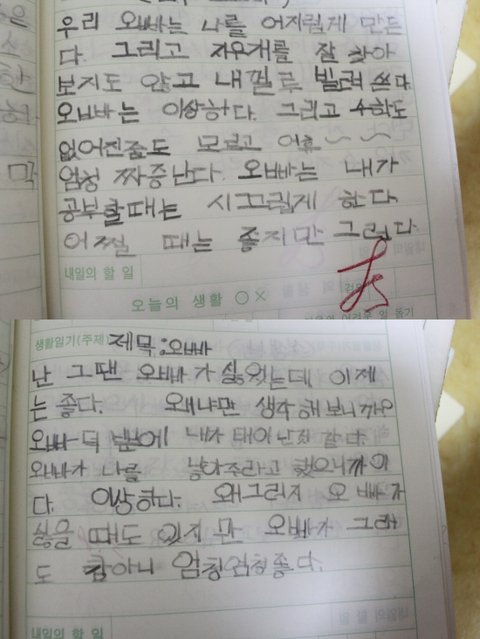 우리 오빠는 나를 어지럽게 만든
다. 그리고 지우개를 잘 찾아
보지도 않고 내껄루 빌려 쓴다
오빠는 이상하다. 그리고 수학도
없어진줄도 모르고 어휴~~
엄청 짜증난다. 오빠는 내가
공부할때는 시끄럽게 한다
어쩔 때는 좋지만 그렇다
내일의 할 일
오늘의 생활 ○×
생활일기(주제) 제목:오빠
난 그땐 오빠가 싫었는데 이제
는 좋다. 왜냐면 생각해보니까
오빠 덕분에 내가 태어난것 같다.
오빠가 나를 낳아주라고 했으니까이
다. 이상하다. 왜그러지 오빠가
싫을 때도 있지만 오빠가 그래
도 아니 엄청엄청좋다.
내일의 할 일